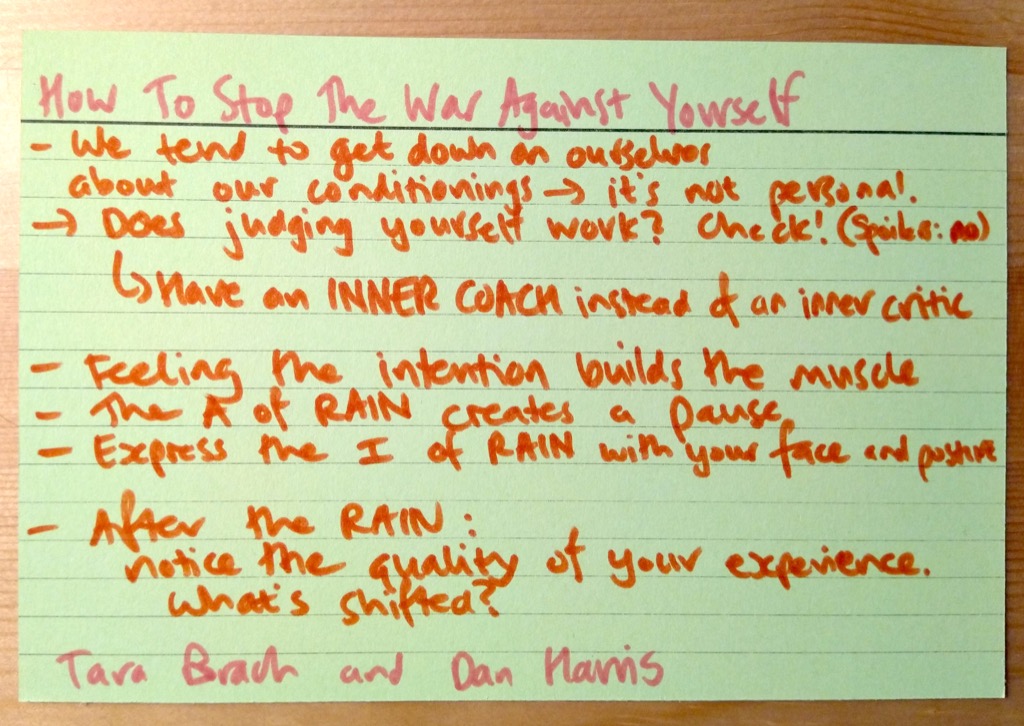 How To Stop The War Against Yourself
- We tend to get down on ourselves
about our conditionings → it's not personal.
→ Does judging yourself work? Check! (Spoiler: no)
↳ Have an INNER COACH instead of an inner critic
- Feeling the intention builds the muscle
- The A of RAIN creates a pause
- Express the I of RAIN with your face and posture
- After the RAIN:
notice the quality of your experience.
What's shifted?
Tara Brach and Dan Harris